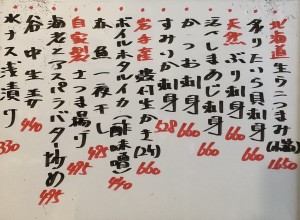 北海道生うにつまみ(小箱) 1650
炙りたいら貝刺身 660
天然ぶり刺身 660
淡べしまあじ刺身 660
かつお刺身 660
すみいか刺身 528
岩手産殻付生かき(2ケ) 660
ボイルホタルイカ(酢味噌) 440
春魚一夜干し 495
自家製さつま揚げ 495
海老とアスパラバター炒め 495
谷中生姜 440
水ナス浅漬け 330